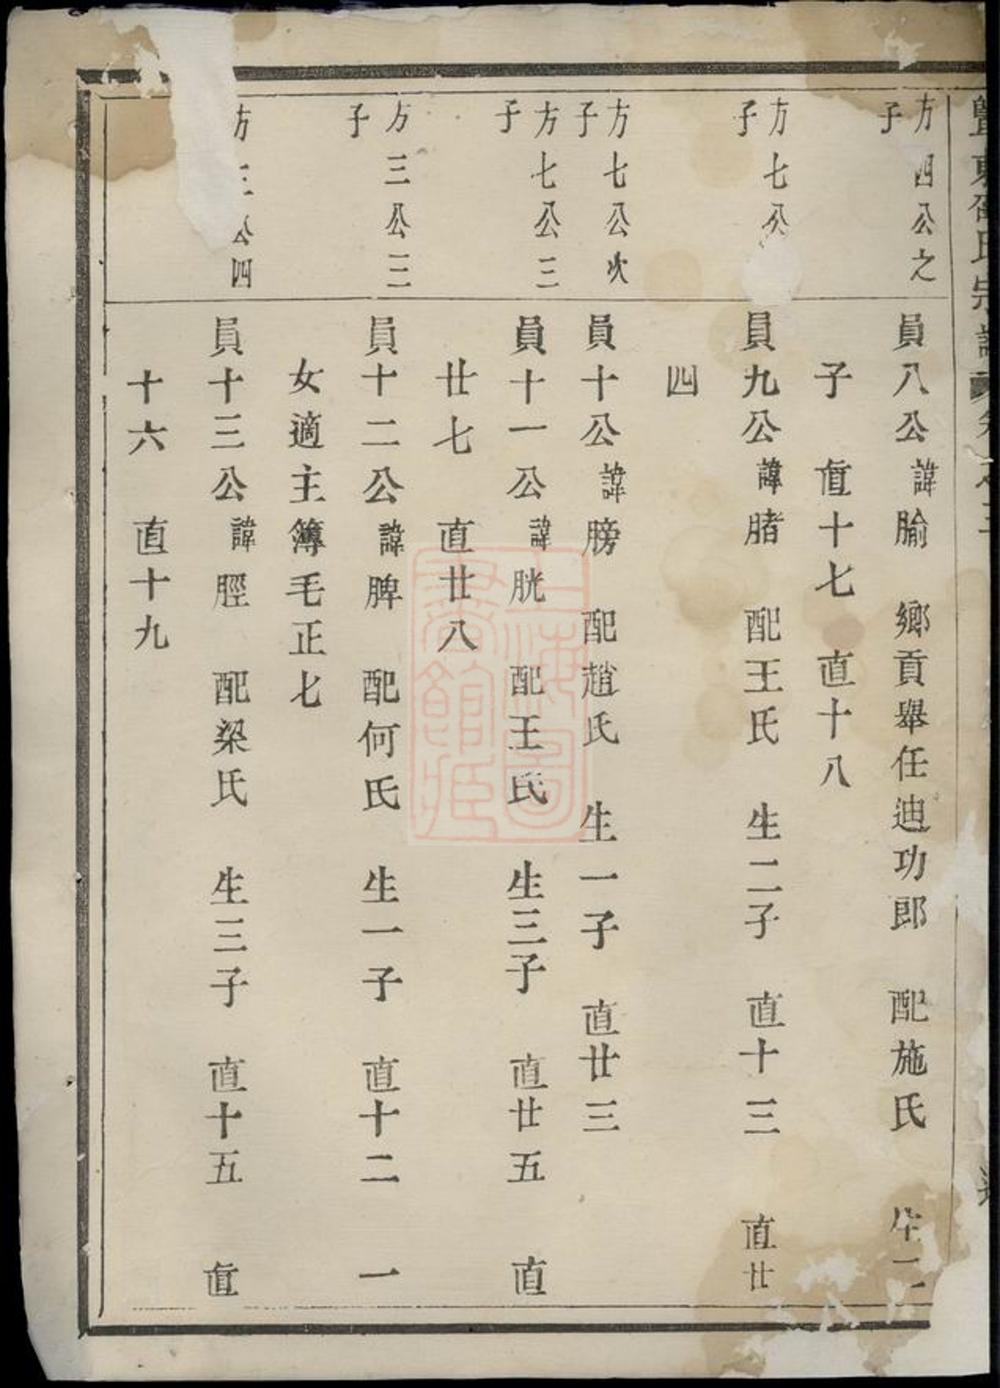 方四公之
子
員八公諱腧 鄉貢舉任迪功郎 配施氏 生二
子 直十七 直十八
方七公
子
員九公諱䐗 配王氏 生二子 直十三 直廿
四
方七公次
子
員十公諱膀 配趙氏 生一子 直廿三
方七公三
子
員十一公諱胱 配王氏 生三子 直廿五 直
廿七 直廿八
方三公三
子
員十二公諱脾 配何氏 生一子 直十二 一
女適主簿毛正七
方三公四
員十三公諱脛 配梁氏 生三子 直十五 直
十六 直十九
上海圖
書館藏